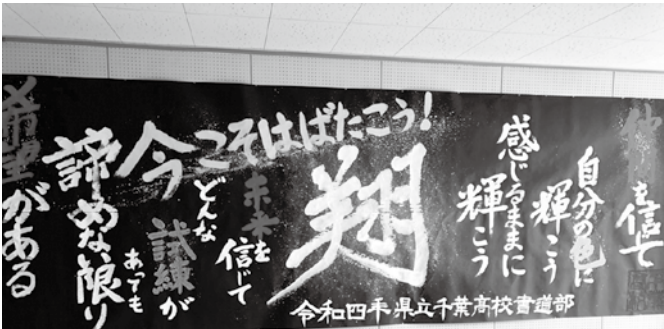 仲間を信じて
自分の色に
輝こう
感じるままに
輝こう
翔
今こそはばたこう！
未来を
信じて
どんな
試練が
あっても
諦めない限り
希望がある
令和四年 県立千葉高校書道部